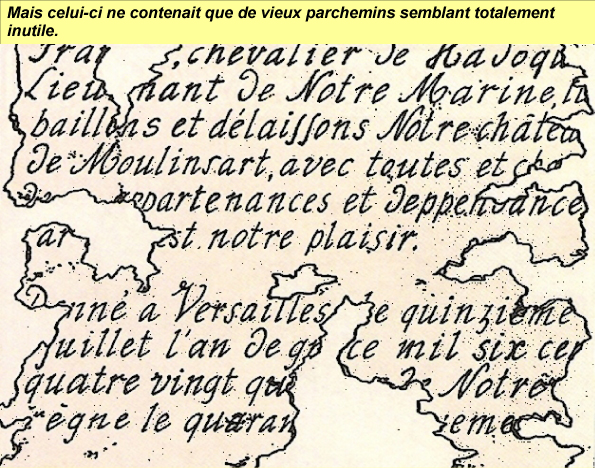 Mais celui-ci ne contenait que de vieux parchemins semblant totalement
inutile.
chevalier de Hadoqu
Lieu nant de Notre Marine,
baillons et délaiſſons Notre château
de Moulinsart, avec toutes et
appartenances et deppendance
ar est notre plaisir.
Donné à Versailles le quinzième
Juillet l'an de ce mil six cen
quatre vingt de Notre
règne le quaran